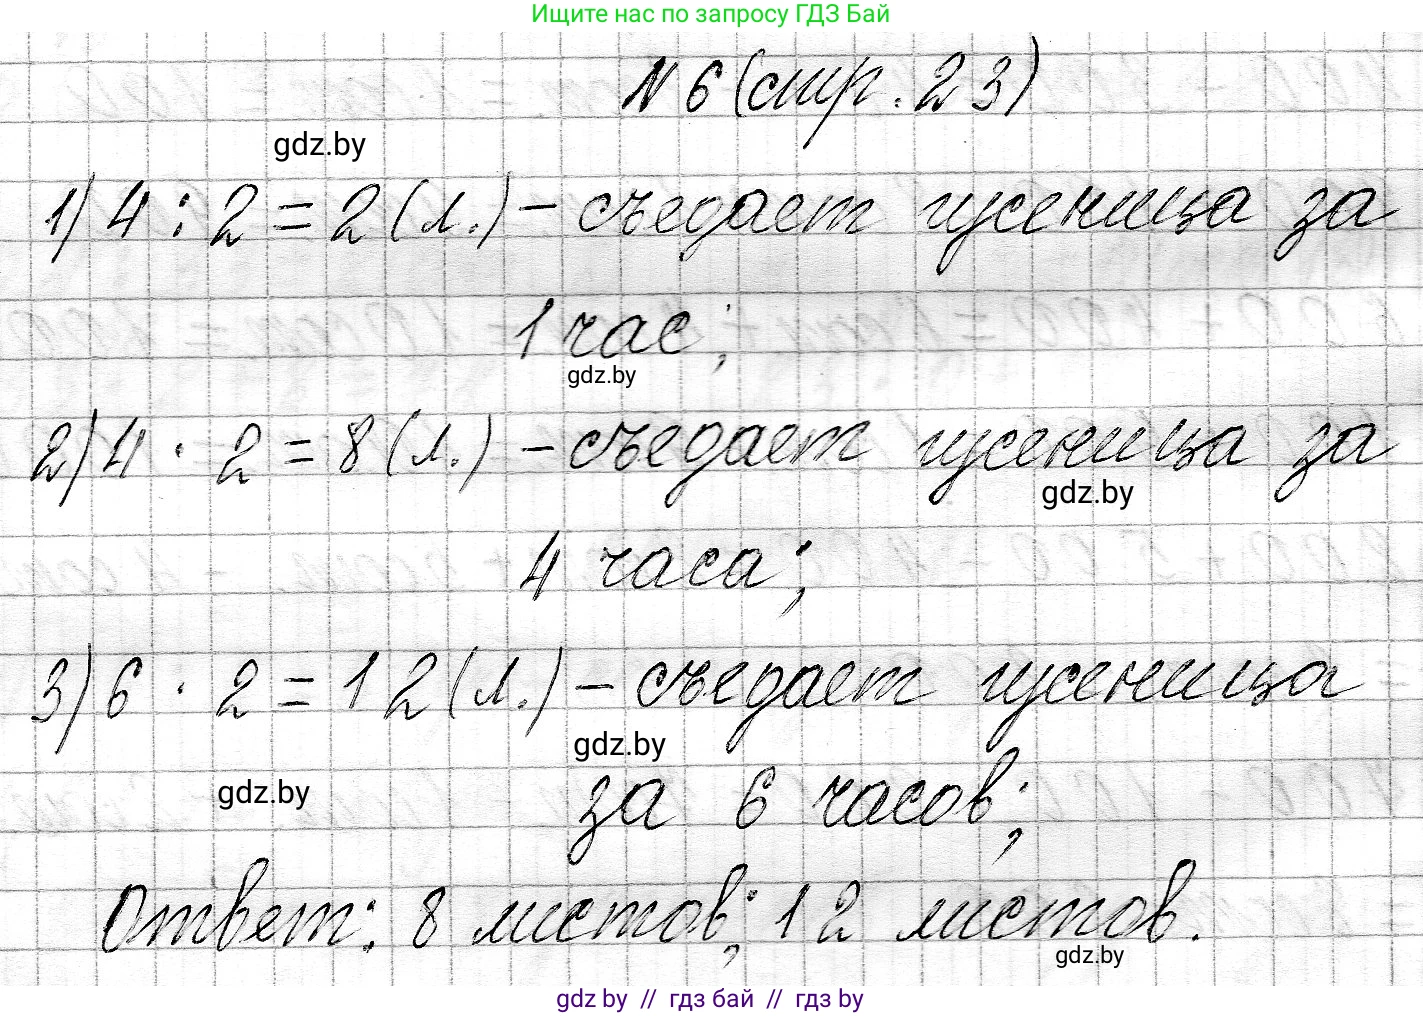 Ищите нас по запросу ГДЗ Бай
№ 6 (стр. 23)
gdz.by
1) 4 : 2 = 2 (л.) – съедает гусеница за
1 час;
gdz.by
2) 4 · 2 = 8 (л.) – съедает гусеница за
gdz.by
4 часа;
3) 6 · 2 = 12 (л.) – съедает гусеница
gdz.by
gdz.by
за 6 часов;
Ответ: 8 листов; 12 листов.
gdz.by
gdz by // гдз бай // гдз by